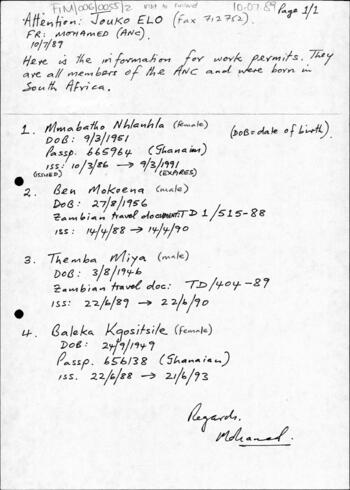 FIM/006/0055/2 visit to Finland 10.07.89 Page 1/1
Attention: JOUKO ELO (Fax 712752)
FR: MOHAMED (ANC).
10/7/89
Here is the information for work permits. They
are all members of the ANC and were born in
South Africa.
1. Mmabatho Nhlanhla (female) (DOB = date of birth).
DOB: 9/3/1951
Passp. 665964 (Ghanaian)
iss: 10/3/86 → 9/3/1991
(ISSUED) (EXPIRES)
2. Ben Mokoena (male)
DOB: 27/8/1956
Zambian travel document: TD 1/515-88
iss: 14/4/88 → 14/4/90
3. Themba Miya (male)
DOB: 3/8/1946
Zambian travel doc: TD/404-89
iss: 22/6/89 → 22/6/90
4. Baleka Kgositsile (female)
DOB: 24/9/1949
Passp. 656138 (Ghanaian)
iss. 22/6/88 → 21/6/93
Regards.
Mohamed.